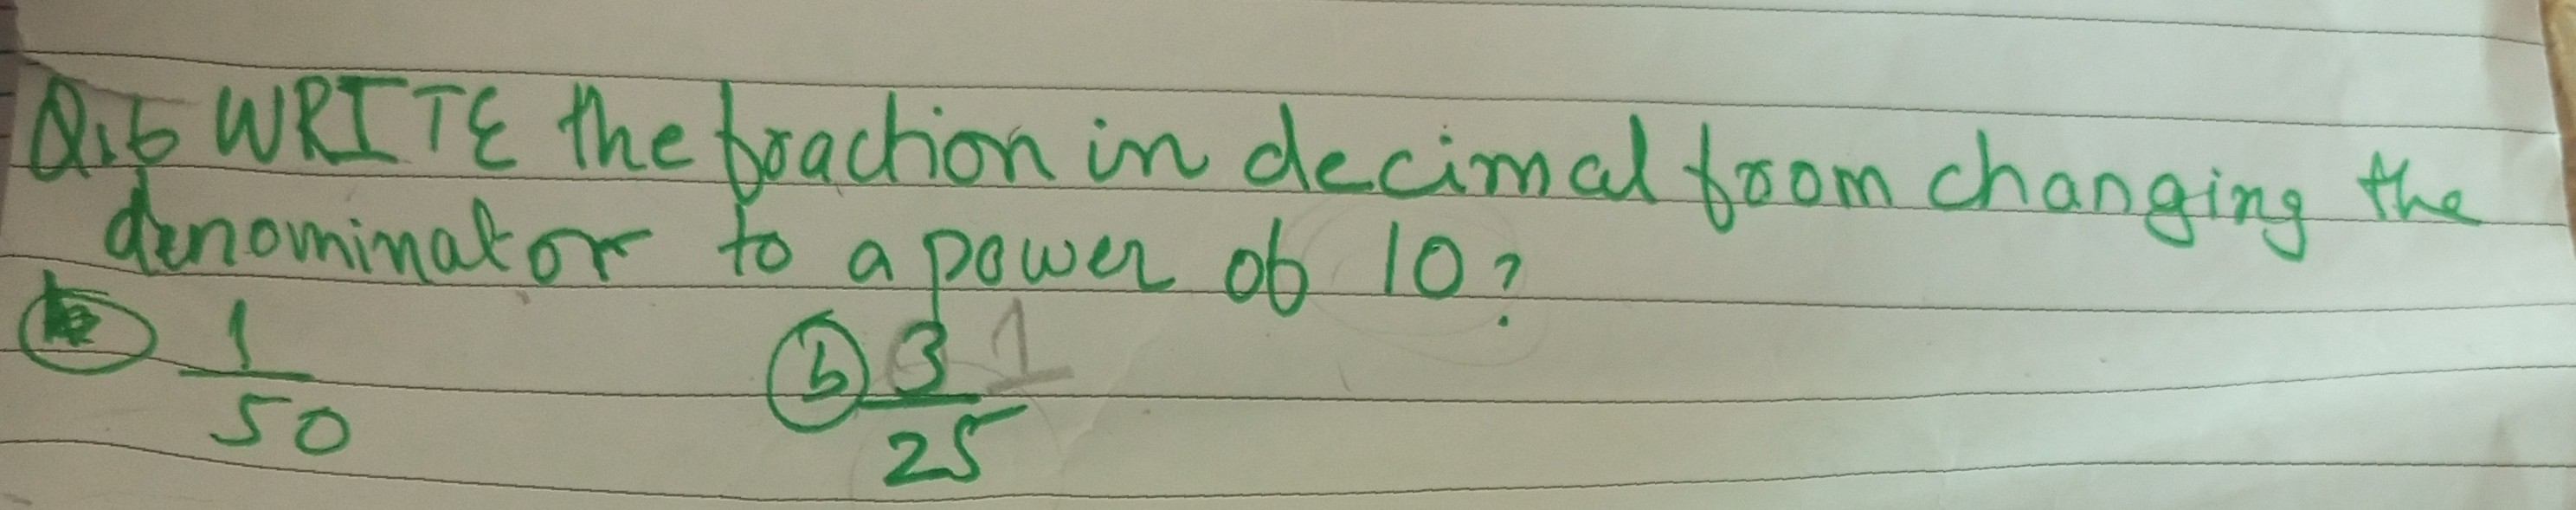 Q.6 WRITE the fraction in decimal from changing the
denominator to a power of 10?
1/50 (b) 3/25 1